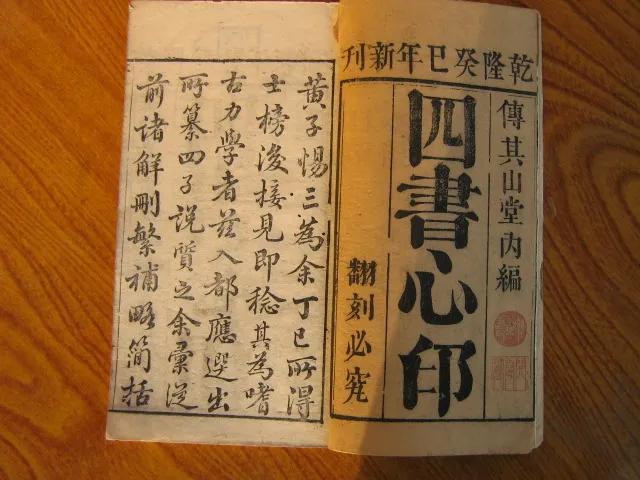 乾隆癸巳年新刊
傳其山堂內編
四書心印
翻刻必究
黃子惕三為余丁巳所得
士榜後接見即稔其為嗜
古力學者茲入都應選出
所纂四子說質之余彙從
前諸解刪繁補略簡括